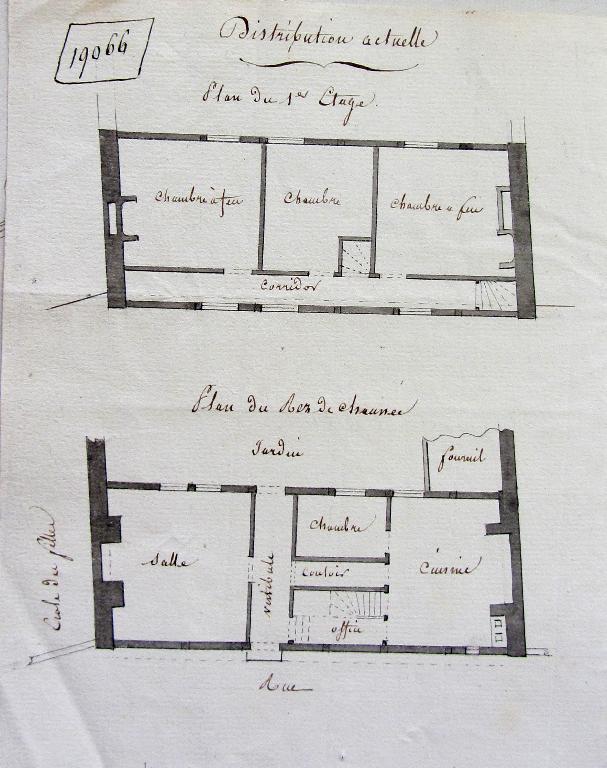 19066
Distribution actuelle
Plan du 1er Etage.
chambre à feu
chambre
chambre a feu
Corridor
Plan du Rez de chaussée
Jardin
fournil
Ecole des filles
Salle
vestibule
chambre
Couloir
office
Cuisine
Rue